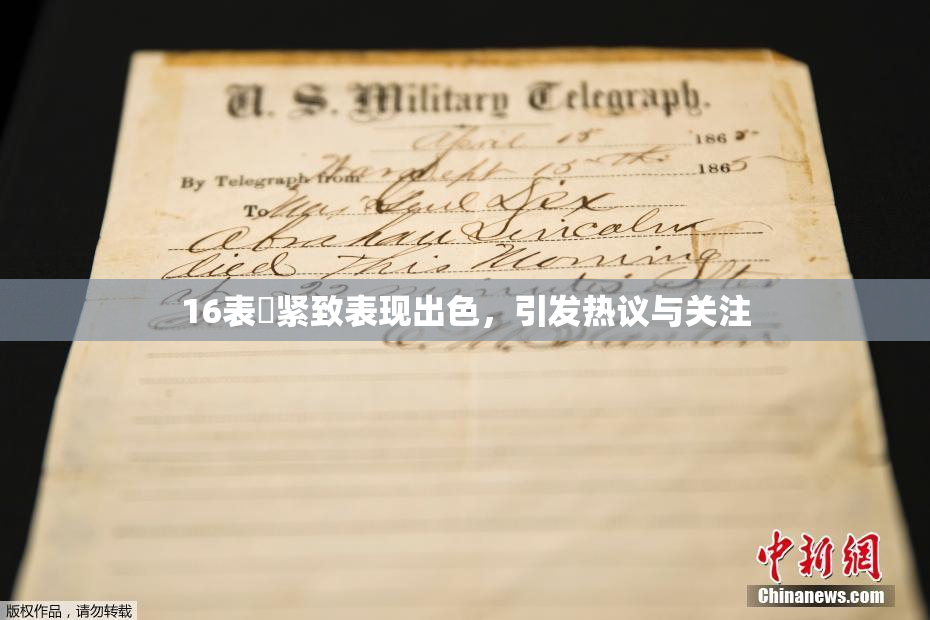 U. S. Military Telegraph.
April 15 1865
By Telegraph from War Dept 15th 1865
To Maj Genl Dix
Abraham Lincoln
died This Morning
at 22 minutes after
16表 紧致表现出色，引发热议与关注
E. M. Stanton
中新网
Chinanews.com
版权作品，请勿转载